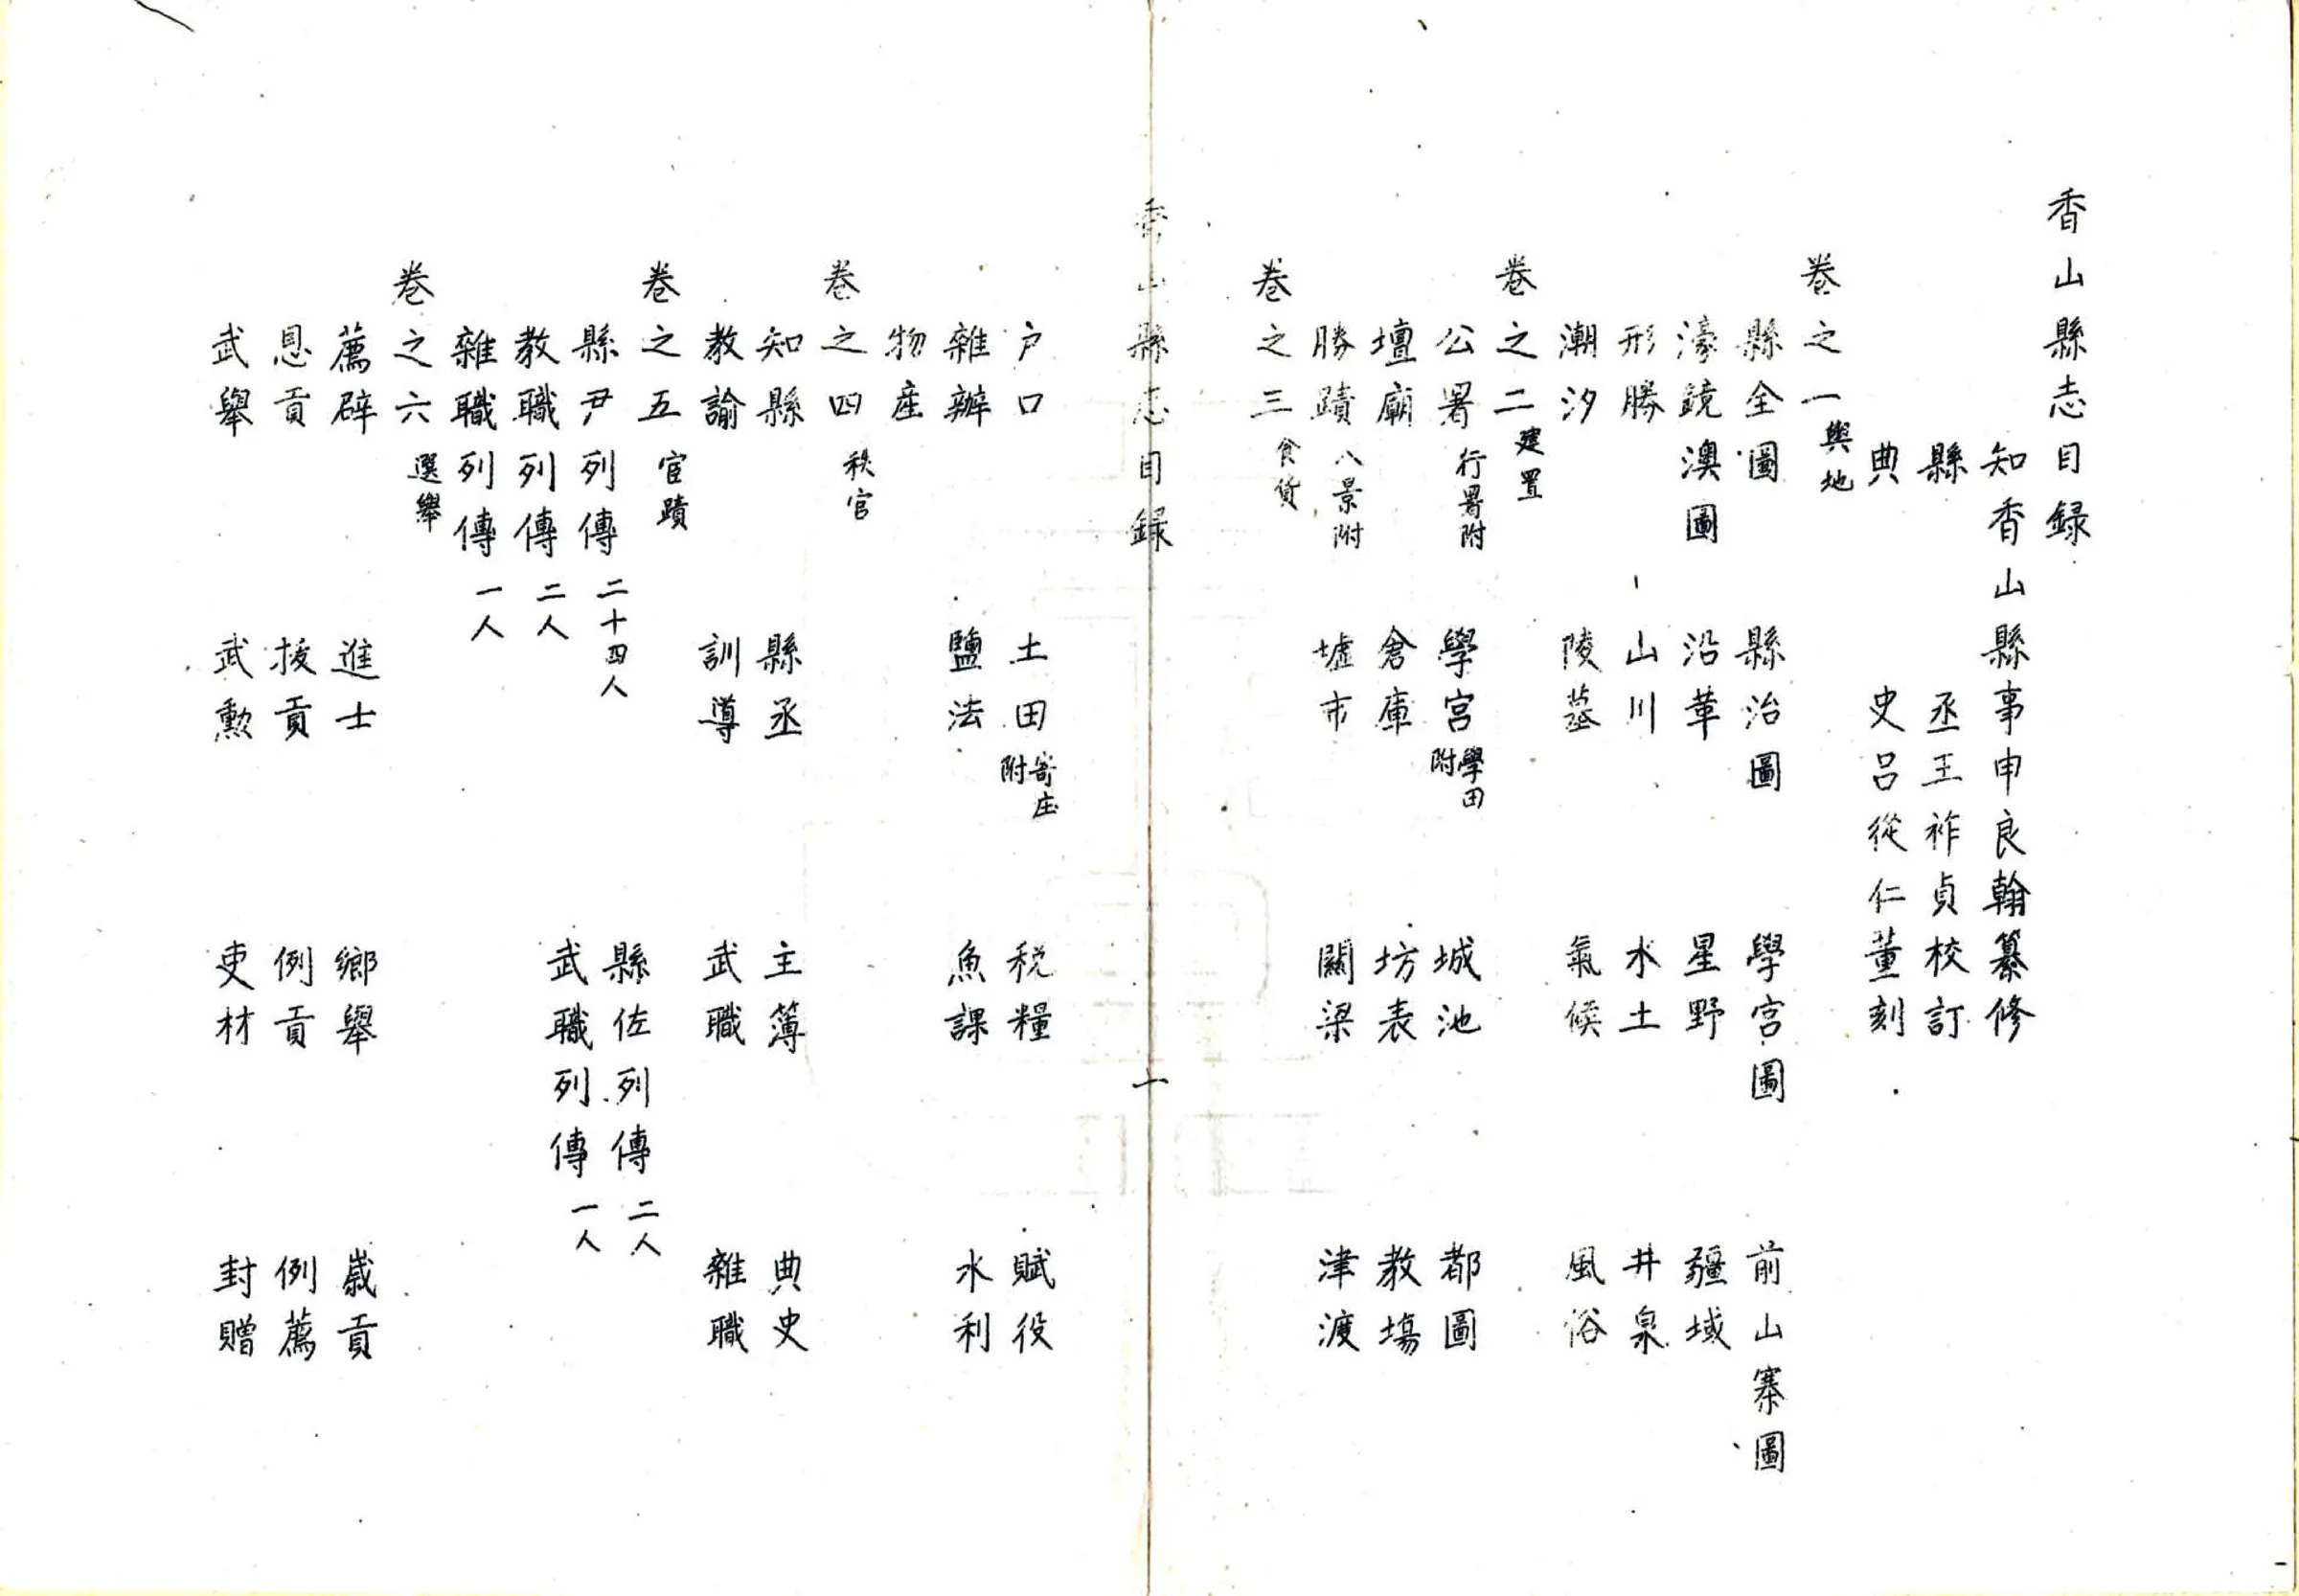 香山縣志目録
知香山縣事申良翰纂修
縣 丞王祚貞校訂
典 史呂從仁董刻
卷之一 輿地
縣全圖 縣治圖 學宮圖 前山寨圖
濠鏡澳圖 沿革 星野 疆域
形勝 山川 水土 井泉
潮汐 陵墓 氣候 風俗
卷之二 建置
公署 行署附 學宮 學田附 城池 都圖
壇廟 倉庫 坊表 教塲
勝蹟 八景附 墟市 關梁 津渡
卷之三 食貨
香山縣志目録 一
户口 土田 寄庄附 税糧 賦役
雜辦 鹽法 魚課 水利
物産
卷之四 秩官
知縣 縣丞 主簿 典史
教諭 訓導 武職 雜職
卷之五 宦蹟
縣尹列傳 二十四人 縣佐列傳 二人
教職列傳 二人 武職列傳 一人
雜職列傳 一人
卷之六 選舉
薦辟 進士 鄉舉 歲貢
恩貢 拔貢 例貢 例薦
武舉 武勲 吏材 封贈